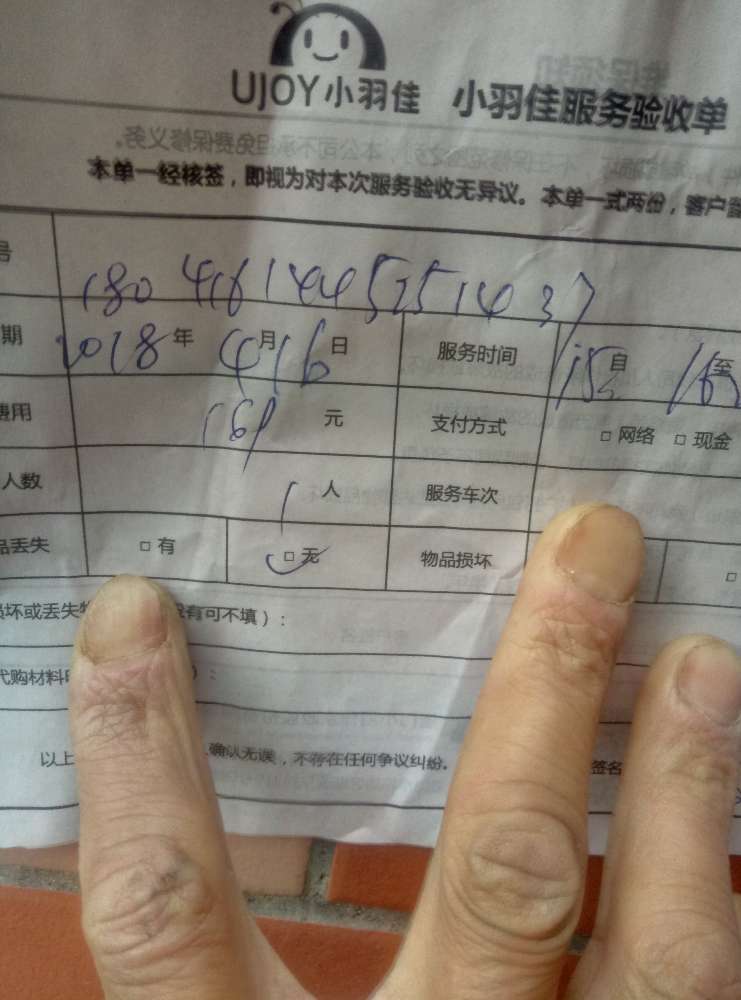 UJOY小羽佳 小羽佳服务验收单
本单一经核签，即视为对本次服务验收无异议。本单一式两份，客户
号 1804161445251437
期 2018年4月16日 服务时间 15 自 16 至
费用 169 元 支付方式 □网络 □现金
人数 1 人 服务车次
品丢失 □有 □无 物品损坏 □
损坏或丢失 没有可不填）：
代购材料 ）：
以上 确认无误，不存在任何争议纠纷。 签名